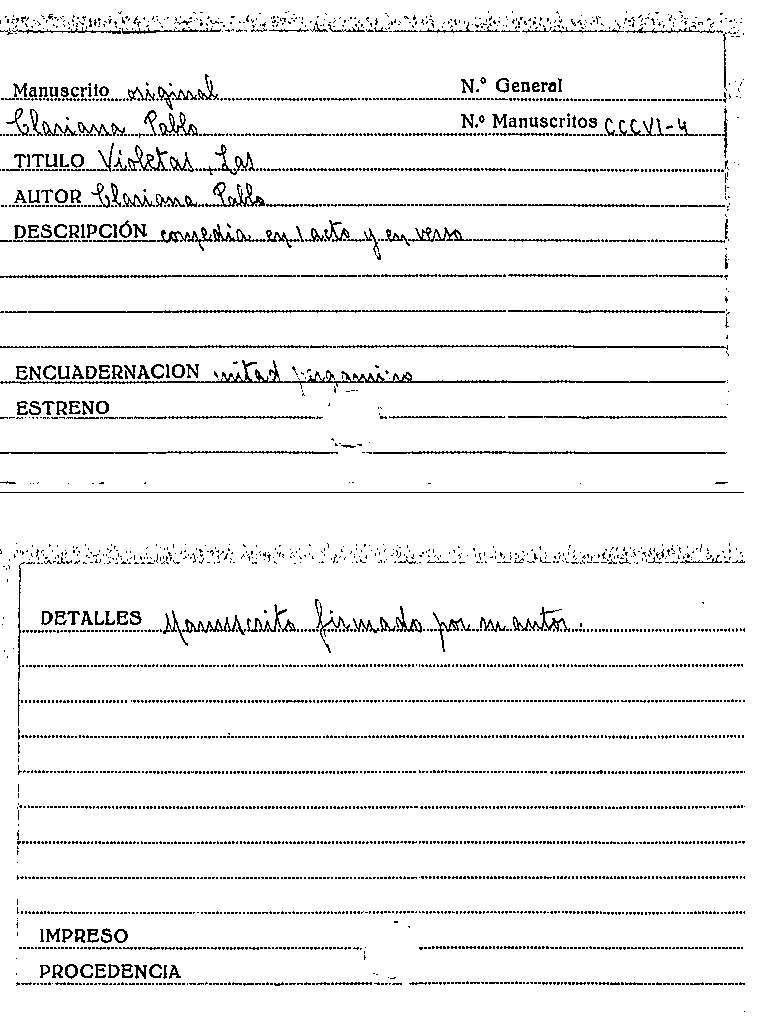 Manuscrito original N.º General
Clariana Pablo N.º Manuscritos CCCVI-4
TITULO Violetas, Las
AUTOR Clariana Pablo
DESCRIPCIÓN comedia en 1 acto y en verso
ENCUADERNACION mitad pergamino
ESTRENO
DETALLES Manuscrito firmado por su autor.
IMPRESO
PROCEDENCIA